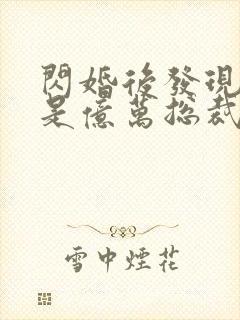 閃婚後發現
是億萬總裁
雪中煙花